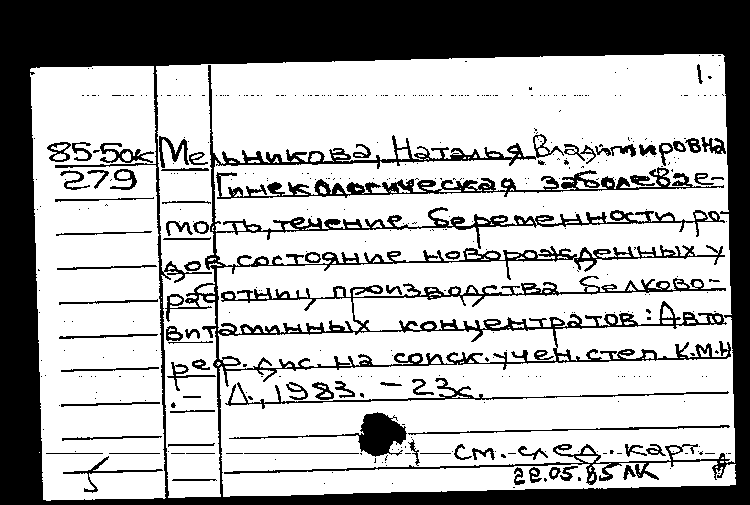 1.
85-5ок Мельникова, Наталья Владимировна
279 Гинекологическая заболевае-
мость, течение беременности, ро-
дов, состояние новорожденных у
работниц производства белково-
витаминных концентратов: Авто-
реф. дис. на соиск. учен. степ. К.М.Н
.- Л., 1983. - 23с.
см. след. карт.
22.05.85 ЛК